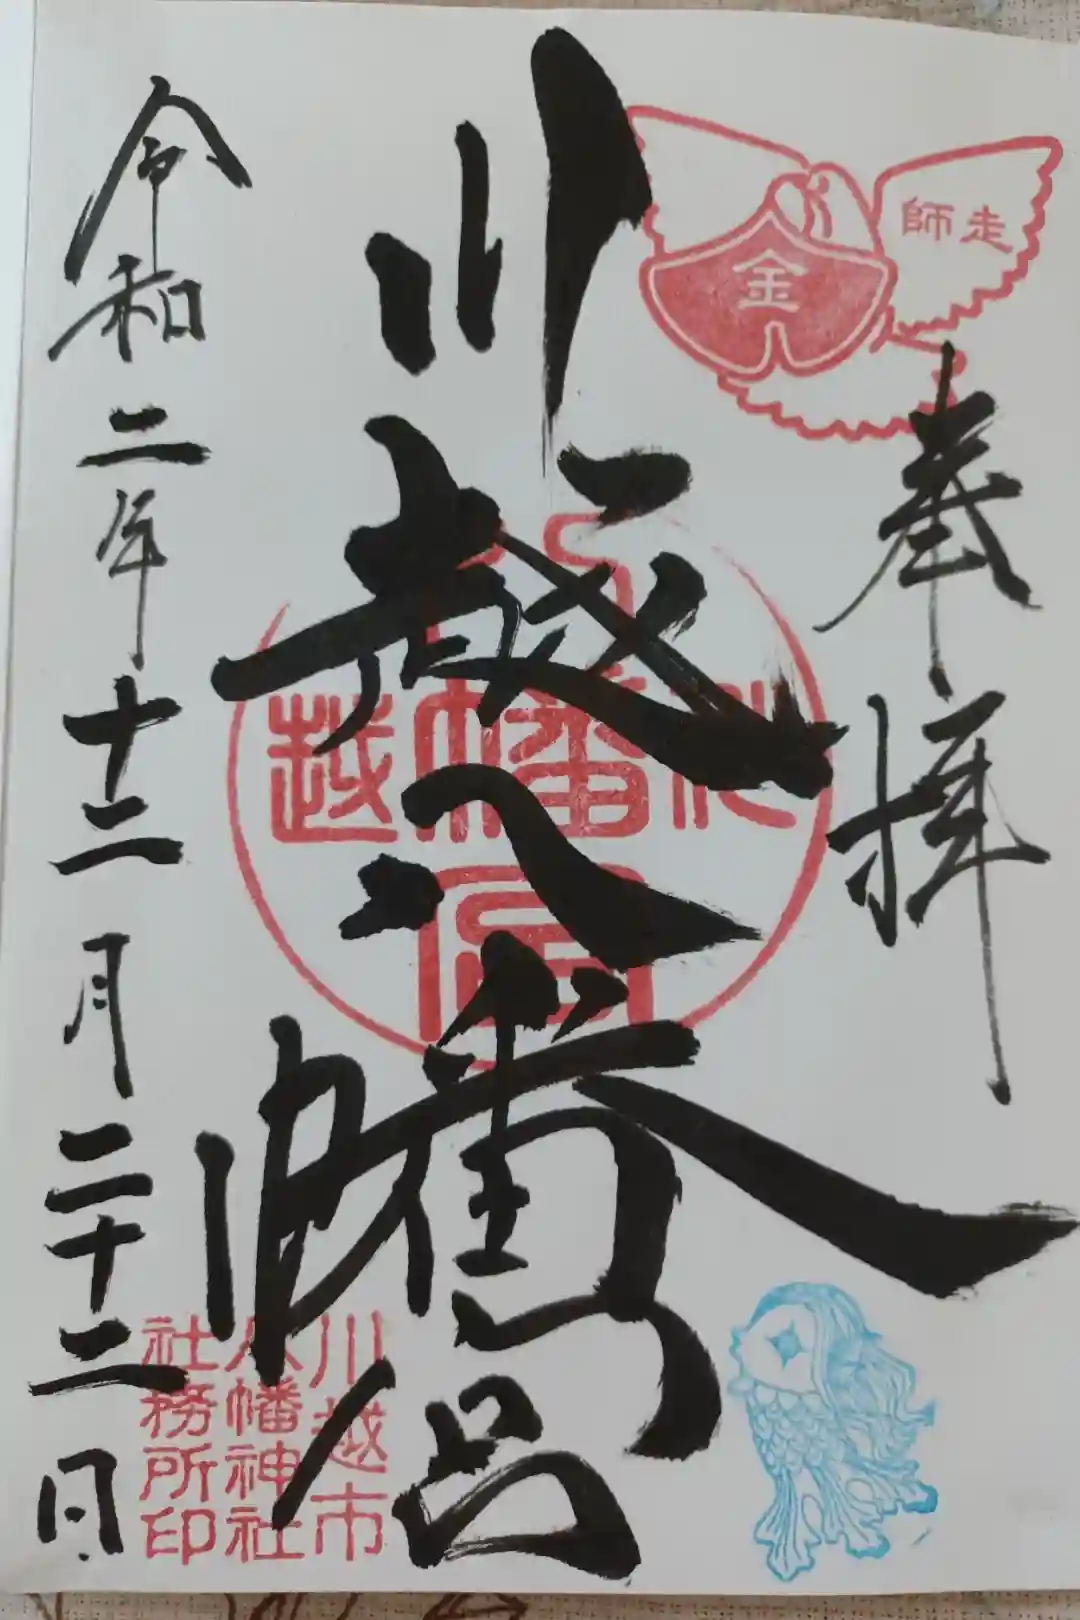 師走
金
奉拝
川越八幡宮
川越
八幡宮
令和二年十二月二十二日
川越市
八幡神社
社務所印